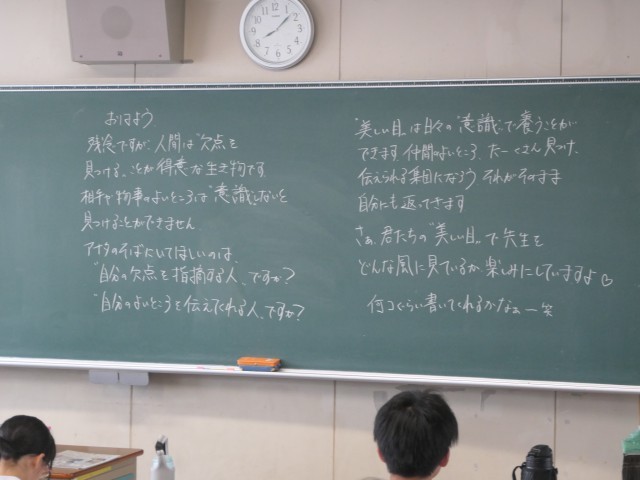 おはよう
残念ですが、人間は"欠点を
見つける"ことが得意な生き物です
相手や物事のよいところは"意識"しないと
見つけることができません
アナタのそばにいてほしいのは、
"自分の欠点を指摘する人"ですか?
"自分のよいところを伝えてくれる人"ですか?
"美しい目"は日々の"意識"で養うことが
できます 仲間のよいところ、たーくさん見つけ、
伝えられる集団になろう それがそのまま
自分にも返ってきます
さぁ、君たちの"美しい目"で先生を
どんな風に見ているか楽しみにしていますよ♡
何コぐらい書いてくれるかなぁー笑